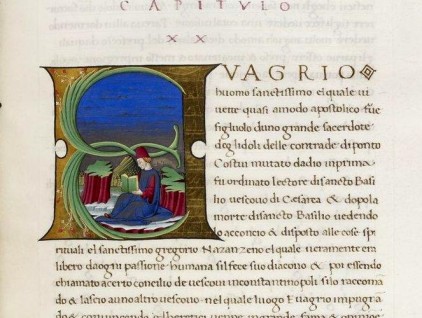 CAPITVLO
XX
EVAGRIO
huomo sanctissimo el quale ui
uette quasi amodo apostolico fue
figliuolo duno grande sacerdote
deglidoli delle contrade di ponto
Costui mutato dadio inprima
fu ordinato lectore di sancto Basi
lio uescouo di Caesarea & dopo la
morte di sancto Basilio uedendo
lo acconcio & disposto alle cose spi
rituali el sanctissimo gregorio Nazanzeno el quale ueramente era
libero da ogni passione humana sil fece suo diacono & poi essendo
chiamato acerto concilio de uescoui inconstantinopoli silo raccoma
do & lascio auno altro uescouo nel quale luogo Euagrio impugna
do & conuincendo gli heretici uenne in grande fama &